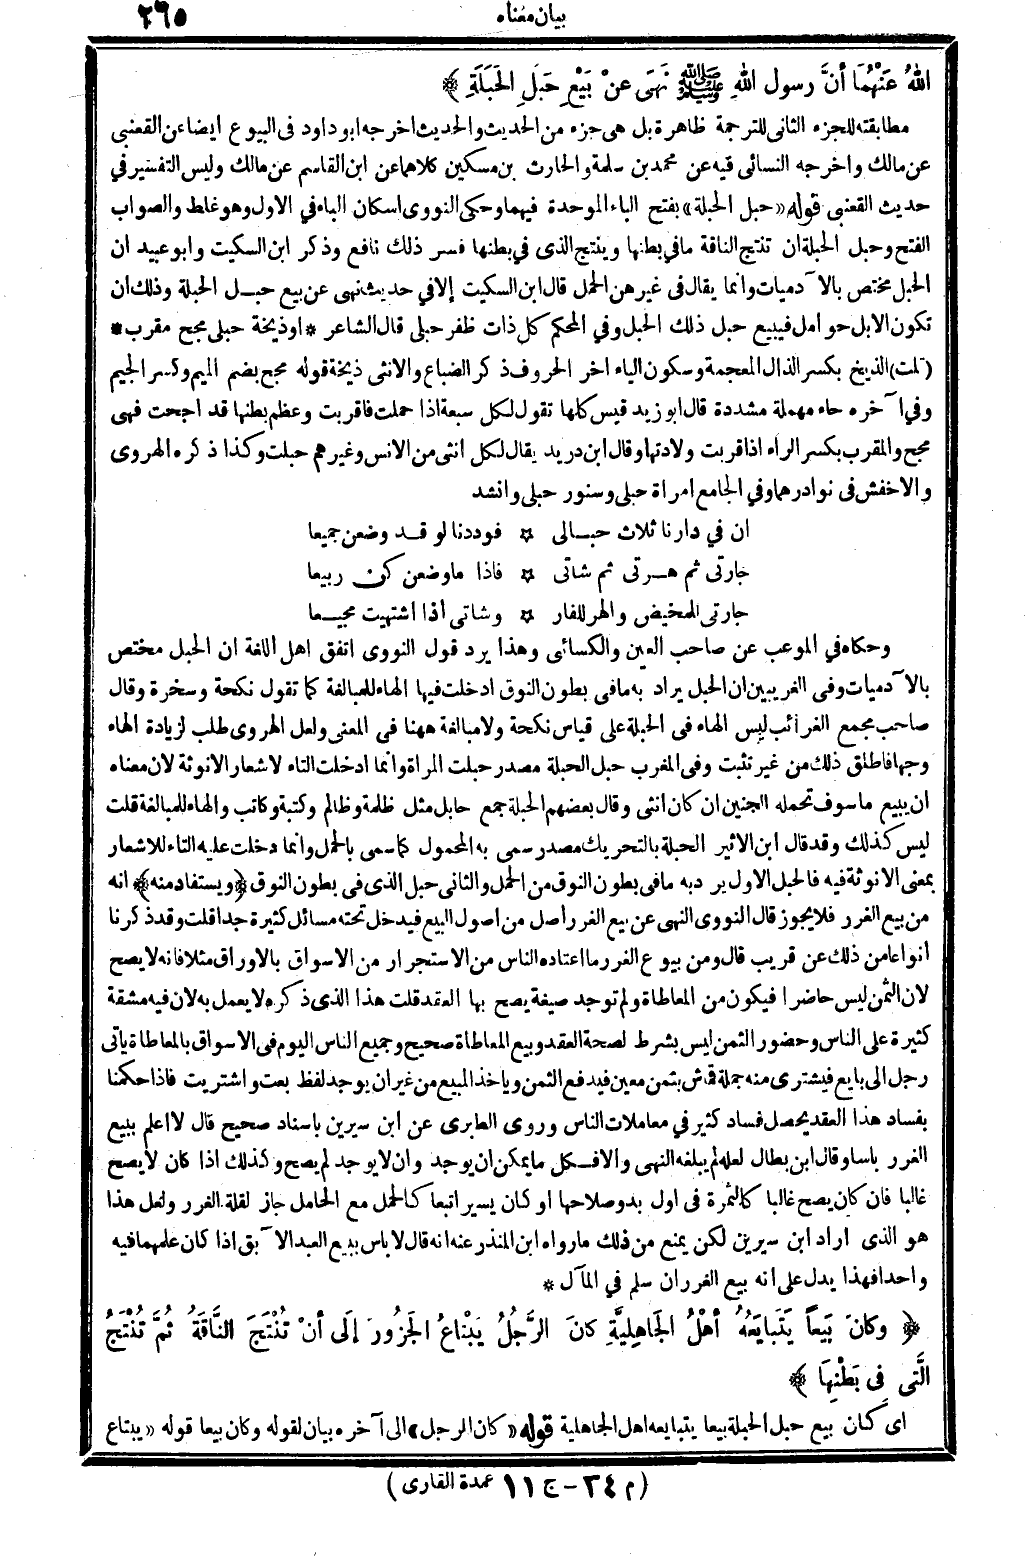 بيان معناه ٢٦٥
اللهُ عَنْهُمَا أَنَّ رسول اللهِ ﷺ نَهَى عَنْ بَيْعِ حَبَلِ الحَبَلَةِ ﴾
مطابقته للجزء الثانى للترجمة ظاهرة بل هى جزء من الحديث والحديث اخرجه ابوداود فى البيوع ايضا عن القعنبى
عن مالك واخرجه النسائى فيه عن محمد بن سلمة والحارث بن مسكين كلاهما عن ابن القاسم عن مالك وليس التفسير في
حديث القعنبى قوله «حبل الحبلة» بفتح الباء الموحدة فيهما وحكى النووى اسكان الباء في الاول وهو غلط والصواب
الفتح وحبل الحبلة ان تنتج الناقة مافي بطنها وينتج الذى في بطنها فسر ذلك نافع وذكر ابن السكيت وابو عبيد ان
الحبل مختص بالآدميات وانما يقال فى غيرهن الحمل قال ابن السكيت إلافي حديث نهى عن بيع حبل الحبلة وذلك ان
تكون الابل حوامل فيبيع حبل ذلك الحبل وفي المحكم كل ذات ظفر حبلى قال الشاعر * اوذيخة حبلى مجح مقرب *
(قلت) الذيخ بكسر الذال المعجمة وسكون الياء اخر الحروف ذكر الضباع والانثى ذيخة قوله مجح بضم الميم وكسر الجيم
وفي آخره حاء مهملة مشددة قال ابوزيد قيس كلها تقول لكل سبعة اذا حملت فاقربت وعظم بطنها قد اجحت فهى
مجح والمقرب بكسر الراء اذا قربت ولادتها وقال ابن دريد يقال لكل انثى من الانس وغيرهم حبلت وكذا ذكره الهروى
والاخفش فى نوادرهما وفي الجامع امراة حبلى وسنور حبلى وانشد
ان في دارنا ثلاث حبالى ✡ فوددنا لو قد وضعن جميعا
جارتى ثم هرتى ثم شاتى ✡ فاذا ماوضعن كن ربيعا
جارتى للمخيض والهر للفار ✡ وشاتى أذا اشتهيت مجيعا
وحكاه في الموعب عن صاحب العين والكسائى وهذا يرد قول النووى اتفق اهل اللغة ان الحبل مختص
بالآدميات وفى الغريبين ان الحبل يراد به مافى بطون النوق ادخلت فيها الهاء للمبالغة كما تقول نكحة وسخرة وقال
صاحب مجمع الغرائب ليس الهاء فى الحبلة على قياس نكحة ولا مبالغة ههنا فى المعنى ولعل الهروى طلب لزيادة الهاء
وجها فاطلق ذلك من غير تثبت وفى المغرب حبل الحبلة مصدر حبلت المراة وانما ادخلت التاء لاشعار الانوثة لان معناه
ان يبيع ما سوف تحمله الجنين ان كان انثى وقال بعضهم الحبلة جمع حابل مثل ظلمة وظالم وكتبة وكاتب والهاء للمبالغة قلت
ليس كذلك وقد قال ابن الاثير الحبلة بالتحريك مصدر سمى به المحمول كما سمى بالحمل وانما دخلت عليه التاء للاشعار
بمعنى الانوثة فيه فالحبل الاول يردبه مافى بطون النوق من الحمل والثانى حبل الذى فى بطون النوق ﴿ ويستفاد منه ﴾ انه
من بيع الغرر فلا يجوز قال النووى النهى عن بيع الغرر اصل من اصول البيع فيدخل تحته مسائل كثيرة جدا قلت وقد ذكرنا
أنواعا من ذلك عن قريب قال ومن بيوع الغرر ما اعتاده الناس من الاستجرار من الاسواق بالاوراق مثلا فانه لا يصح
لان الثمن ليس حاضرا فيكون من المعاطاة ولم توجد صيغة يصح بها العقد قلت هذا الذى ذكره لا يعمل به لان فيه مشقة
كثيرة على الناس وحضور الثمن ليس بشرط لصحة العقد وبيع المعاطاة صحيح وجميع الناس اليوم فى الاسواق بالمعاطاة يأتى
رجل الى بايع فيشترى منه جملة قماش بثمن معين فيدفع الثمن وياخذ المبيع من غير ان يوجد لفظ بعت واشتريت فاذا حكمنا
بفساد هذا العقد يحصل فساد كثير في معاملات الناس وروى الطبرى عن ابن سيرين باسناد صحيح قال لا اعلم ببيع
الغرر باسا وقال ابن بطال لعله لم يبلغه النهى والا فكل مايمكن ان يوجد وان لا يوجد لم يصح وكذلك اذا كان لا يصح
غالبا فان كان يصح غالبا كالثمرة فى اول بدو صلاحها او كان يسيرا تبعا كالحمل مع الحامل جاز لقلة الغرر ولعل هذا
هو الذى اراد ابن سيرين لكن يمنع من ذلك مارواه ابن المنذر عنه انه قال لاباس ببيع العبد الآبق اذا كان علمهما فيه
واحدا فهذا يدل على انه بيع الغرر ان سلم في المآل *
﴿ وكانَ بَيعاً يَتَبايَعُهُ أَهْلُ الجَاهليَّةِ كانَ الرَّجُلُ يَبْتاعُ الجَزُورَ إلَى أنْ تُنْتَجَ النَّاقَةُ ثُمَّ تُنْتَجُ
الَّتى فِى بَطْنِهَا ﴾
اى كان بيع حبل الحبلة بيعا يتبايعه اهل الجاهلية قوله «كان الرجل» الى آخره بيان لقوله وكان بيعا قوله «يبتاع
(م ٣٤ – ج ١١ عمدة القارى)